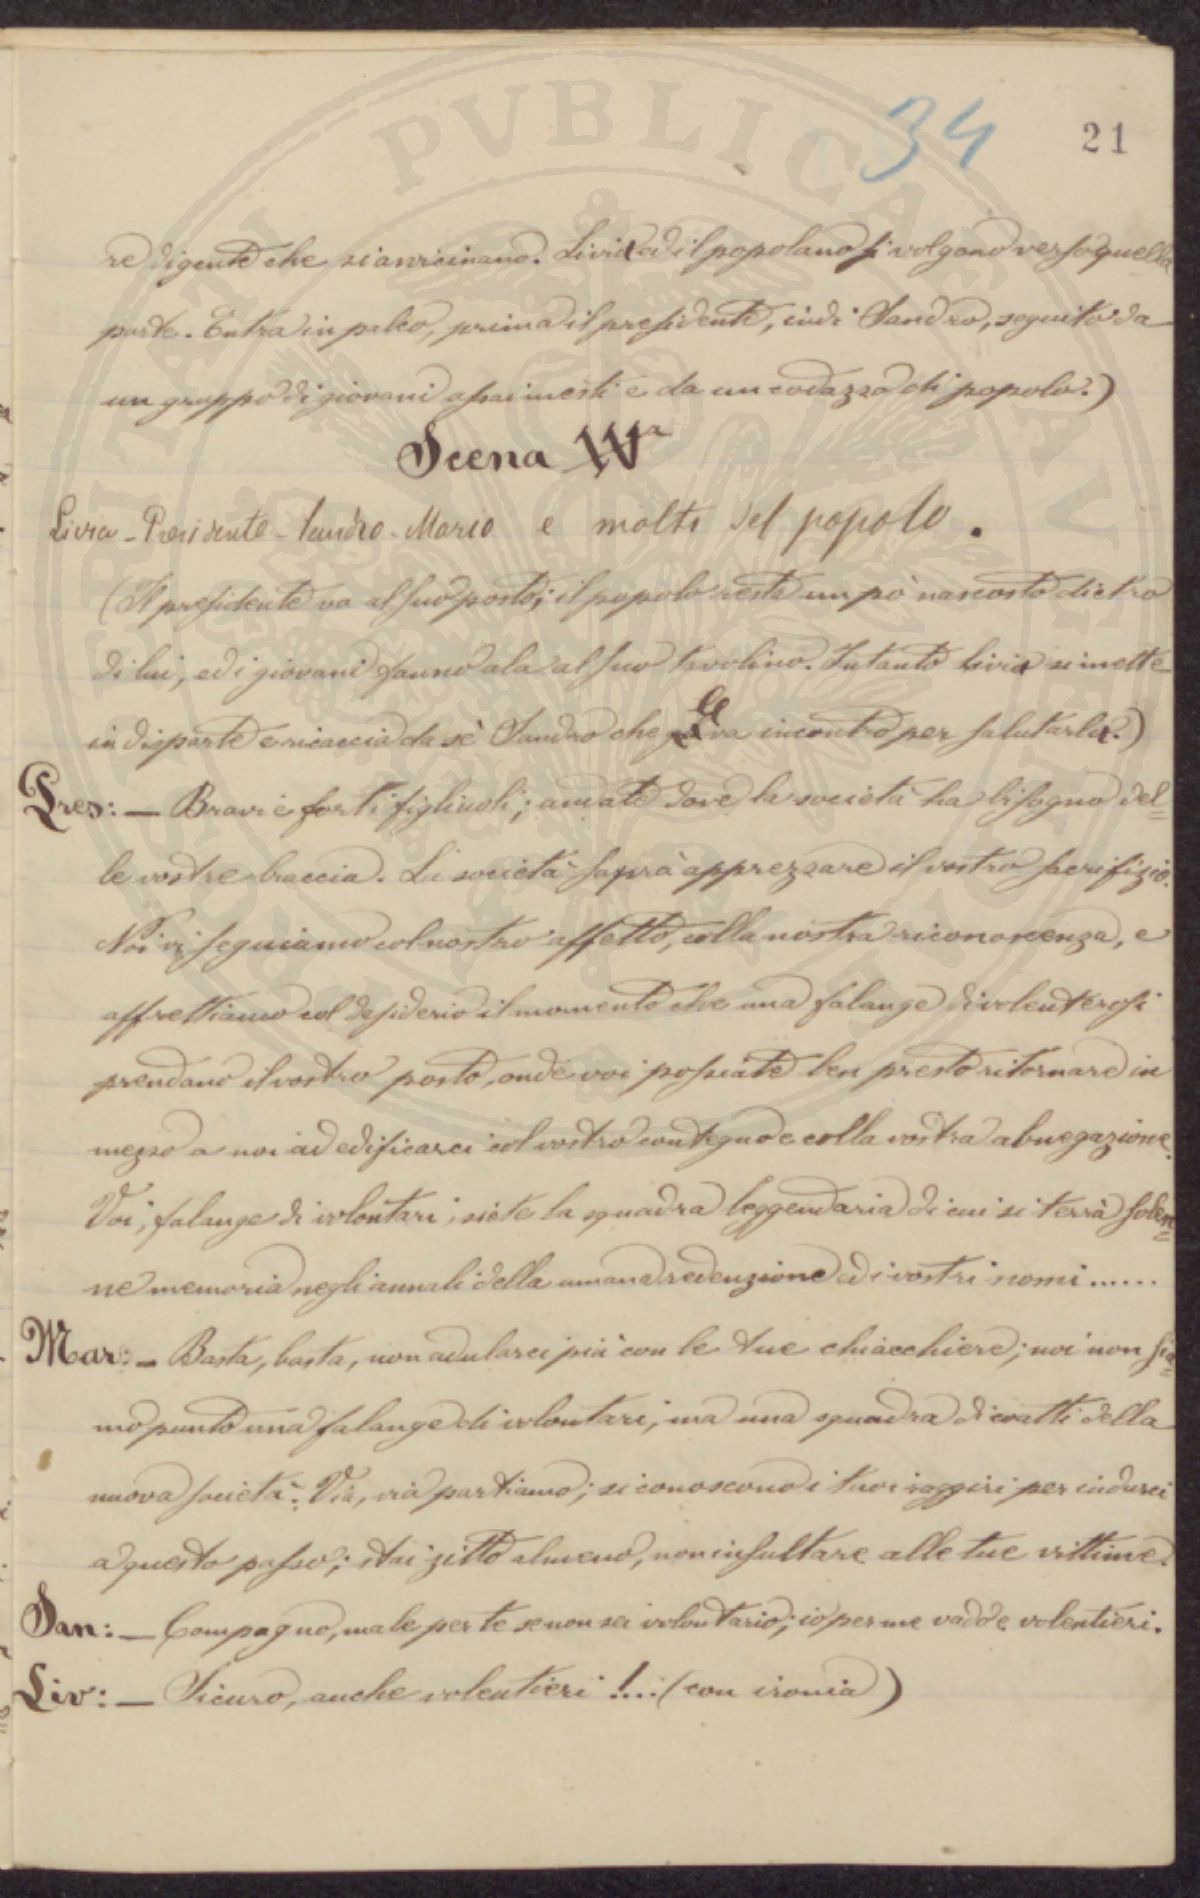 PVBLICAE
34
21
re di gente che si avvicinano. Livia ed il popolano si volgono verso quella
parte. Entra in palco, prima il presidente, indi Sandro, seguito da
un gruppo di giovani assai mesti e da un codazzo di popolo.)
Scena
Livia - Presidente - Sandro - Mario e molti del popolo.
(Il presidente va al suo posto; il popolo resta un pò nascosto dietro
di lui, ed i giovani fanno ala al suo tavolino. Intanto Livia si mette
in disparte e ricaccia da sè Sandro che le va incontro per salutarla.)
Pres: — Bravi e forti figliuoli; andate dove la società ha bisogno del=
le vostre braccia. La società saprà apprezzare il vostro sacrifizio.
Noi vi seguiamo col nostro affetto, colla nostra riconoscenza, e
affrettiamo col desiderio il momento che una falange di volenterosi
prendano il vostro posto, onde voi possiate ben presto ritornare in
mezzo a noi ad edificarci col vostro contegno e colla vostra abnegazione.
Voi, falange di volontari, siete la squadra leggendaria di cui si terrà solen=
ne memoria negli annali della umana redenzione ed i vostri nomi......
Mar: — Basta, basta, non adularci più con le tue chiacchiere; noi non sia=
mo punto una falange di volontari, ma una squadra di coatti della
nuova società. Via, via partiamo; si conoscono i tuoi raggiri per indurci
a questo passo; stai zitto almeno, non insultare alle tue vittime.
San: — Compagno, male per te se non sei volontario; io per me vado e volentieri.
Liv: — Sicuro, anche volentieri!... (con ironia)